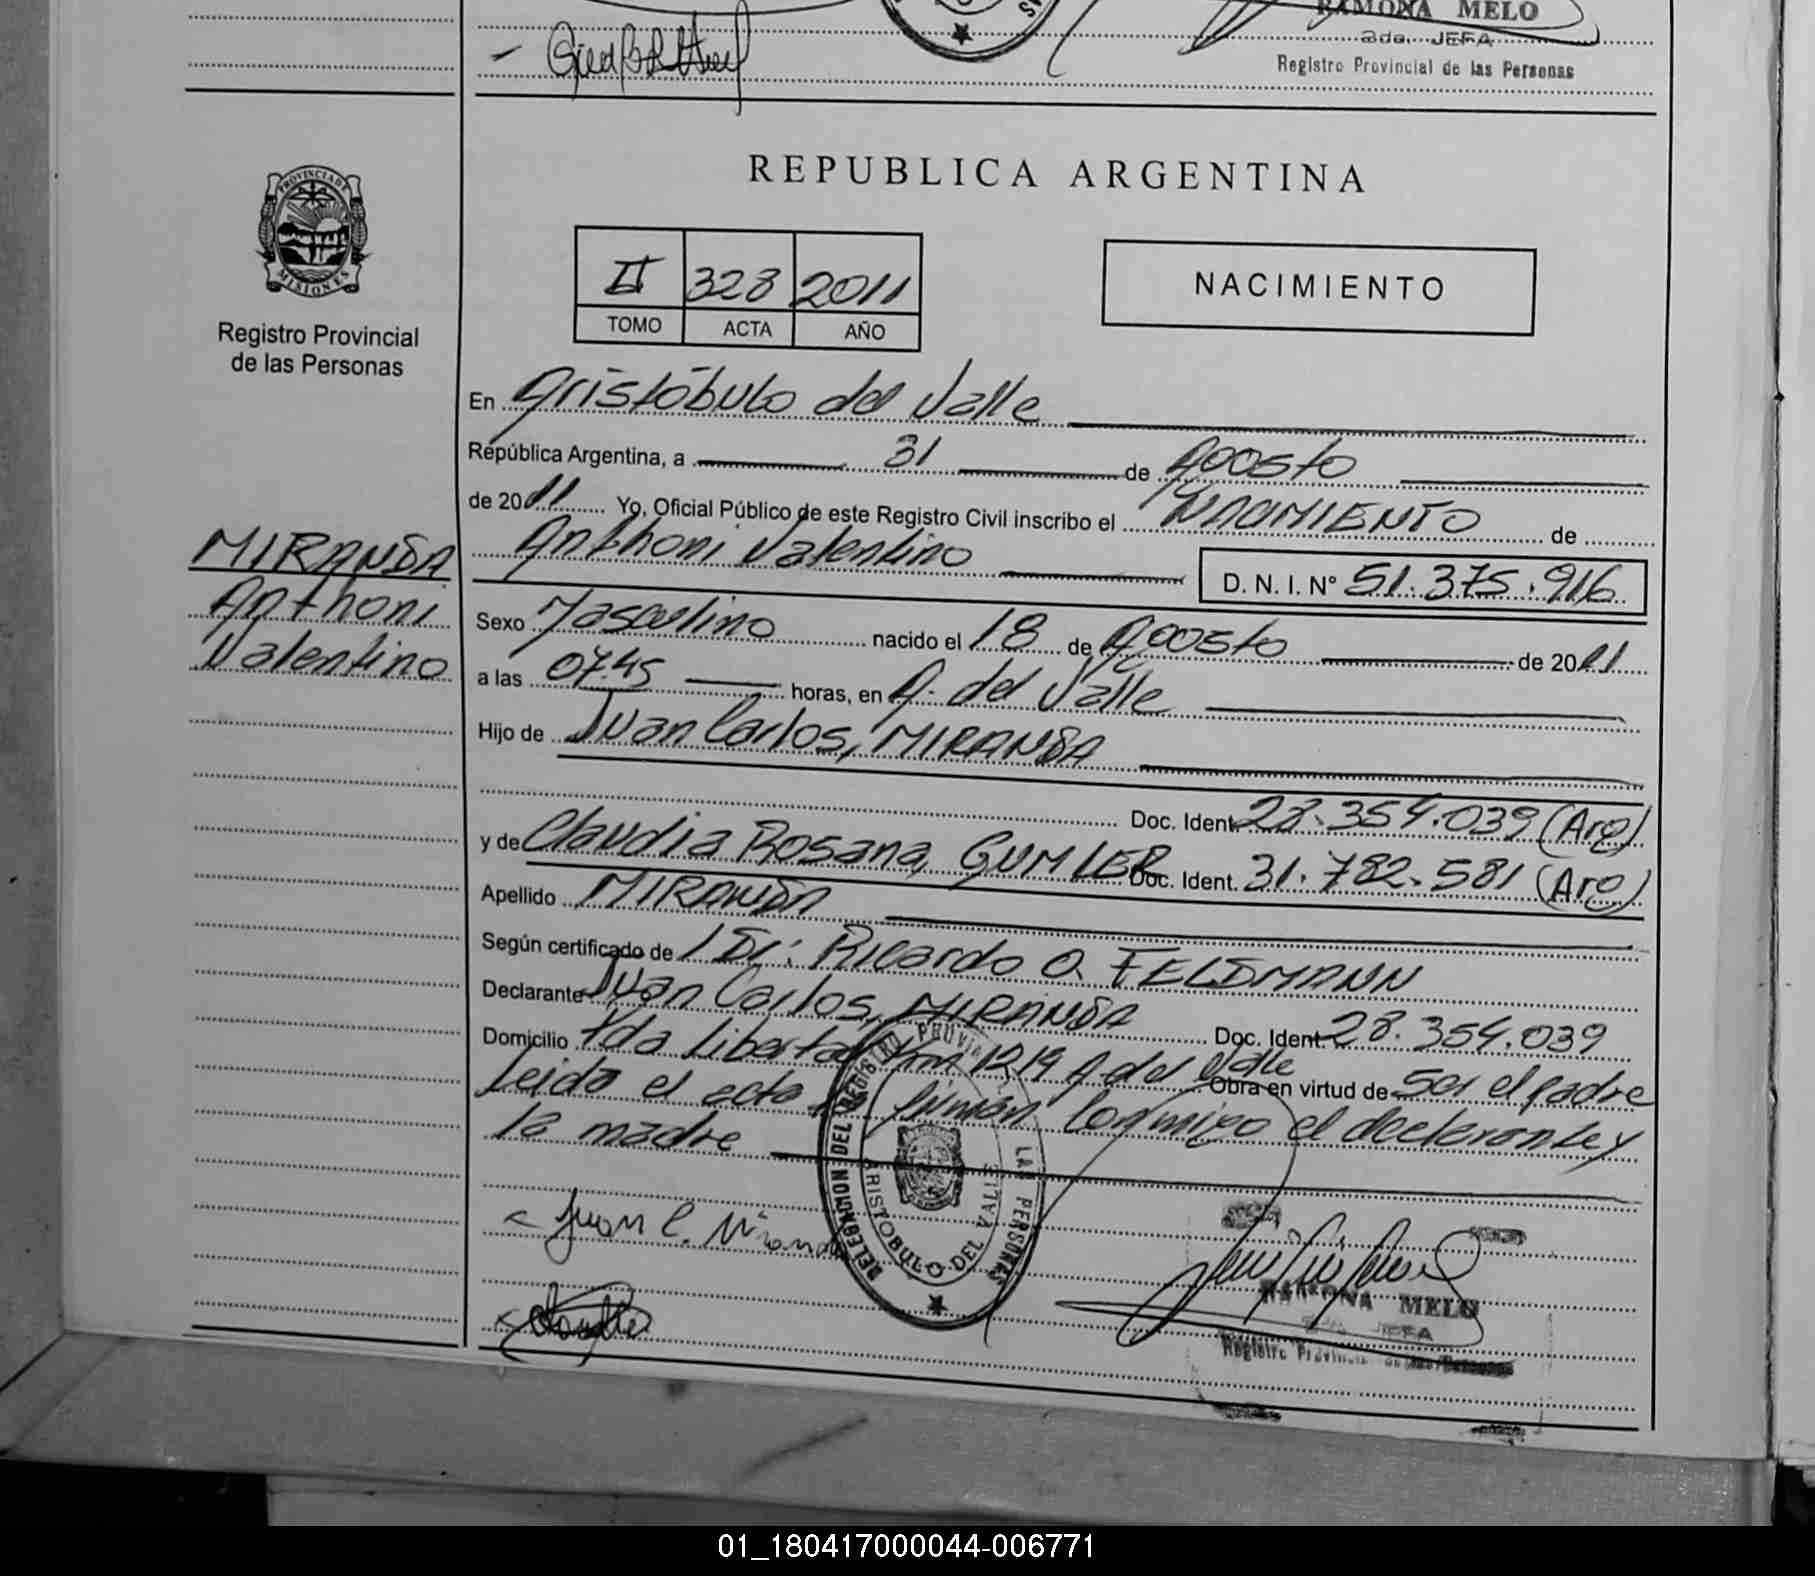 RAMONA MELO
2da. JEFA
Registro Provincial de las Personas
PROVINCIA DE
MISIONES
Registro Provincial
de las Personas
REPUBLICA ARGENTINA
II 328 2011
TOMO ACTA AÑO
NACIMIENTO
En Aristóbulo del Valle
República Argentina, a 31 de Agosto
de 2011 Yo, Oficial Público de este Registro Civil inscribo el NACIMIENTO de
MIRANDA
Anthoni
Valentino
Anthoni Valentino D. N. I. N° 51.375.916
Sexo Masculino nacido el 18 de Agosto de 2011
a las 07:45 horas, en A. del Valle
Hijo de Juan Carlos, MIRANDA
Doc. Ident. 28.354.039 (Arg)
y de Claudia Rosana, GUMLER Doc. Ident. 31.782.581 (Arg)
Apellido MIRANDA
Según certificado de Dr: Ricardo O. FELDMANN
Declarante Juan Carlos, MIRANDA Doc. Ident. 28.354.039
Domicilio Libertad km 1219 A del Valle Obra en virtud de Ser el padre
Leida el acta firman conmigo el declarante y
la madre
DELEGACION DEL REGISTRO LAS PERSONAS
ARISTOBULO DEL VALLE
Juan C. Miranda
RAMONA MELO
2da. JEFA
Registro Provincial de las Personas
01_180417000044-006771